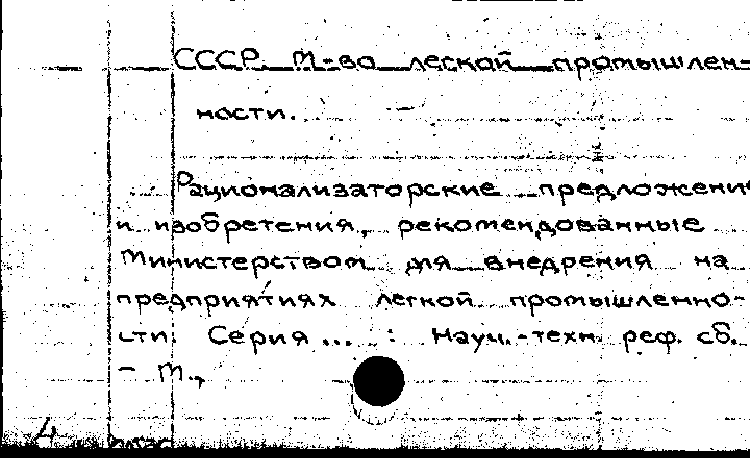 СССР. М-во легкой промышлен-
ности.
Рационализаторские предложени
и изобретения, рекомендованные
Министерством для внедрения на
предприятиях легкой промышленно-
сти: Серия ... : Науч.-техн. реф. сб.
– М.,